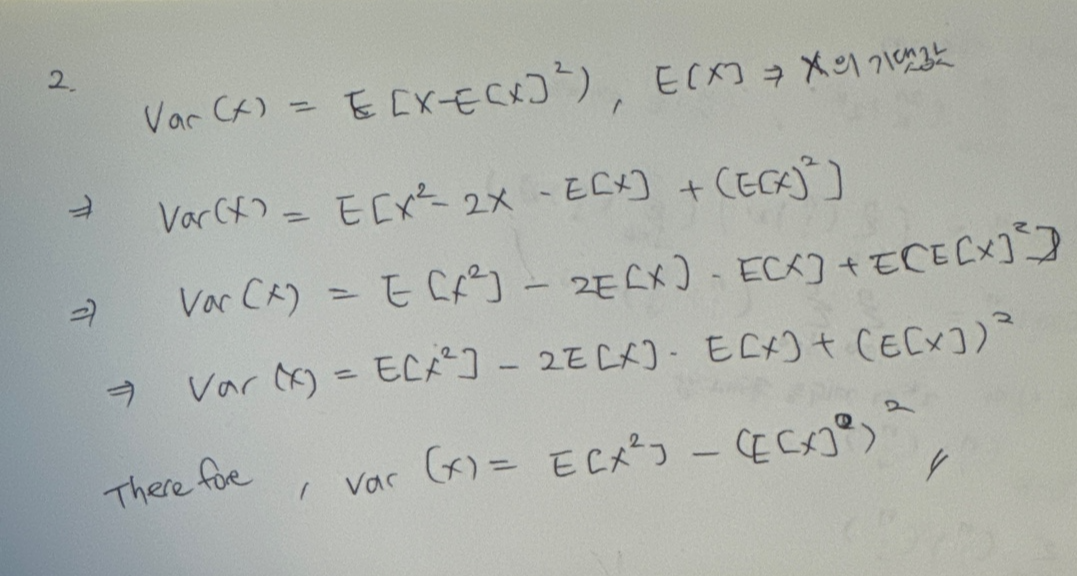 2.
Var(X) = E[X-E[X]²), E[X] ⇒ X의 기댓값
⇒ Var(X) = E[X²- 2X - E[X] + (E[X)²]
⇒ Var(X) = E[X²] - 2E[X] · E[X] + E[E[X]²]
⇒ Var(X) = E[X²] - 2E[X] · E[X] + (E[X])²
Therefore, var(x) = E[X²] - (E[X])²